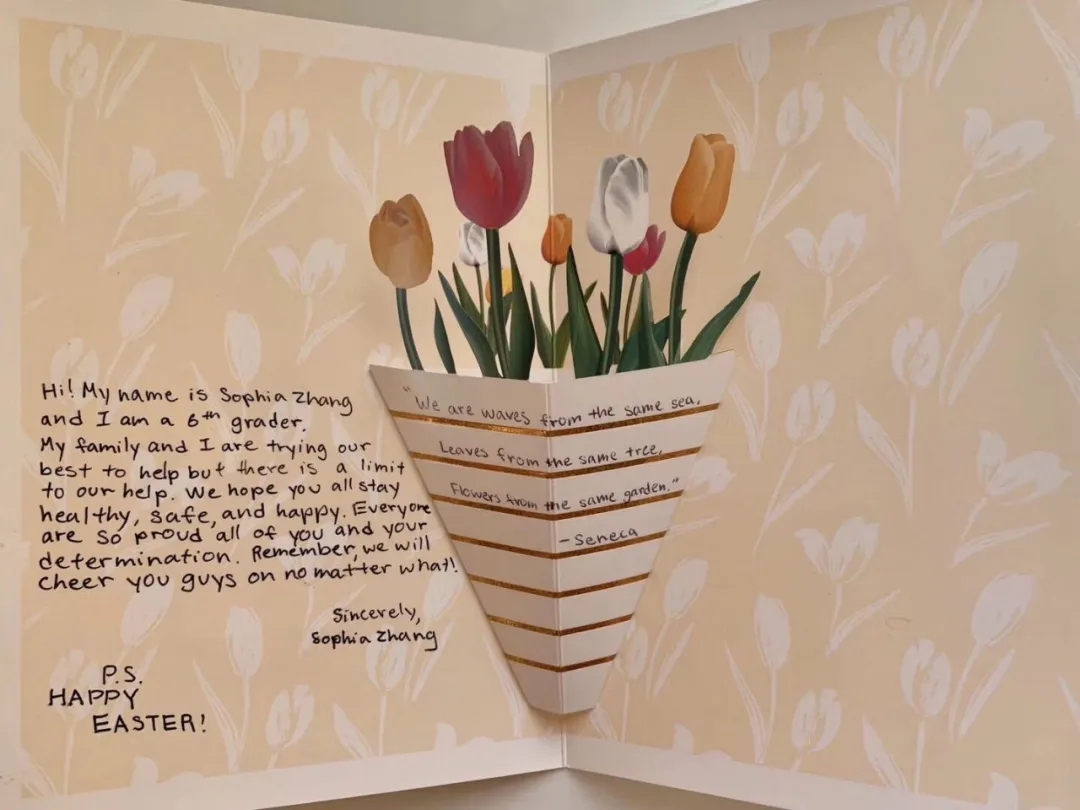 Hi! My name is Sophia Zhang
and I am a 6th grader.
My family and I are trying our
best to help but there is a limit
to our help. We hope you all stay
healthy, safe, and happy. Everyone
are so proud all of you and your
determination. Remember, we will
cheer you guys on no matter what!
Sincerely,
Sophia Zhang
P.S.
HAPPY
EASTER!
"We are waves from the same sea,
Leaves from the same tree,
Flowers from the same garden."
-Seneca